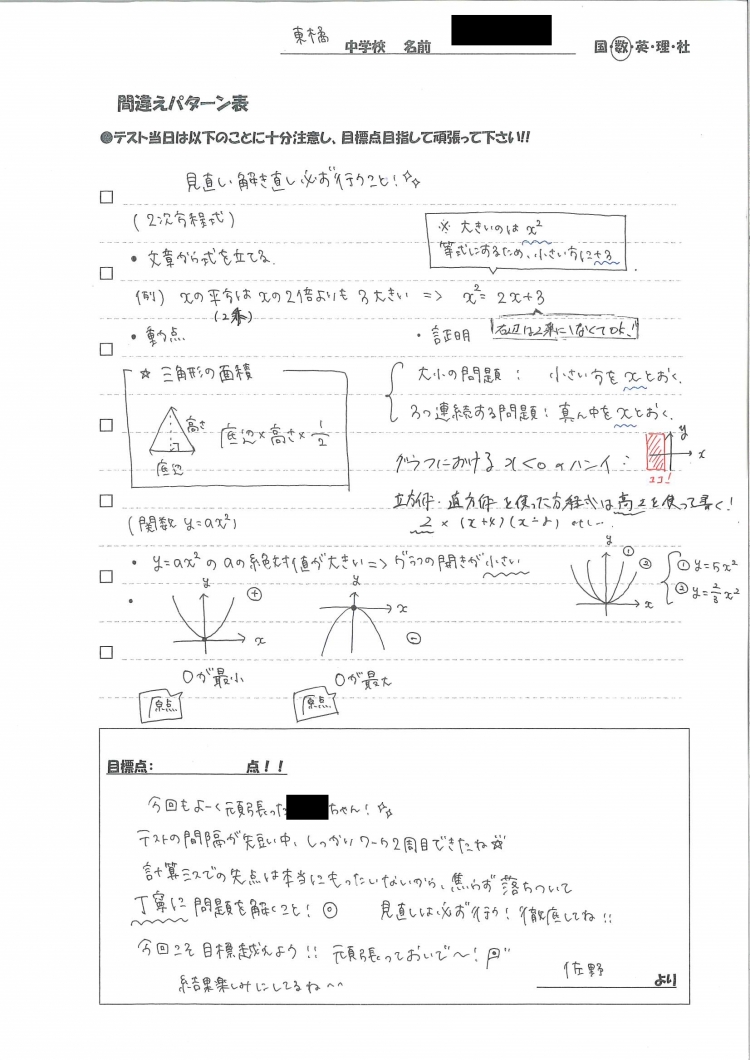 東橘 中学校 名前 国・数・英・理・社
間違えパターン表
●テスト当日は以下のことに十分注意し、目標点目指して頑張って下さい!!
見直し、解き直し必ず行うこと!
(2次方程式)
※ 大きいのは x²
等式にするため、小さい方に+3
• 文章から式を立てる.
(例) xの平方は xの2倍よりも 3大きい => x² = 2x+3
(2乗)
右辺は2乗にしなくてOK!
• 動点
・証明
☆ 三角形の面積
高さ
底辺
底辺×高さ×1/2
大小の問題: 小さい方を xとおく.
3つ連続する問題: 真ん中を xとおく.
グラフにおける x<0 のハンイ:
y
x
ココ!
立方体・直方体を使った方程式は高さを使って書く!
2 × (x+4)(x-2)
(関数 y=ax²)
• y=ax² の aの絶対値が大きい=> グラフの開きが小さい
y
x
① ②
① y=5x²
② y=2/3x²
•
y
x
+
y
x
−
0が最小
原点
0が最大
原点
目標点: 点!!
今回もよーく頑張った ちゃん!
テストの間隔が短い中、しっかりワーク2周目できたね☆
計算ミスでの失点は本当にもったいないから、焦らず落ちついて
丁寧に問題を解くこと! ◎ 見直しは必ず行う! 徹底してね!!
今回こそ目標越えよう!! 頑張っておいで〜!
結果楽しみにしてるね^^
佐野 より